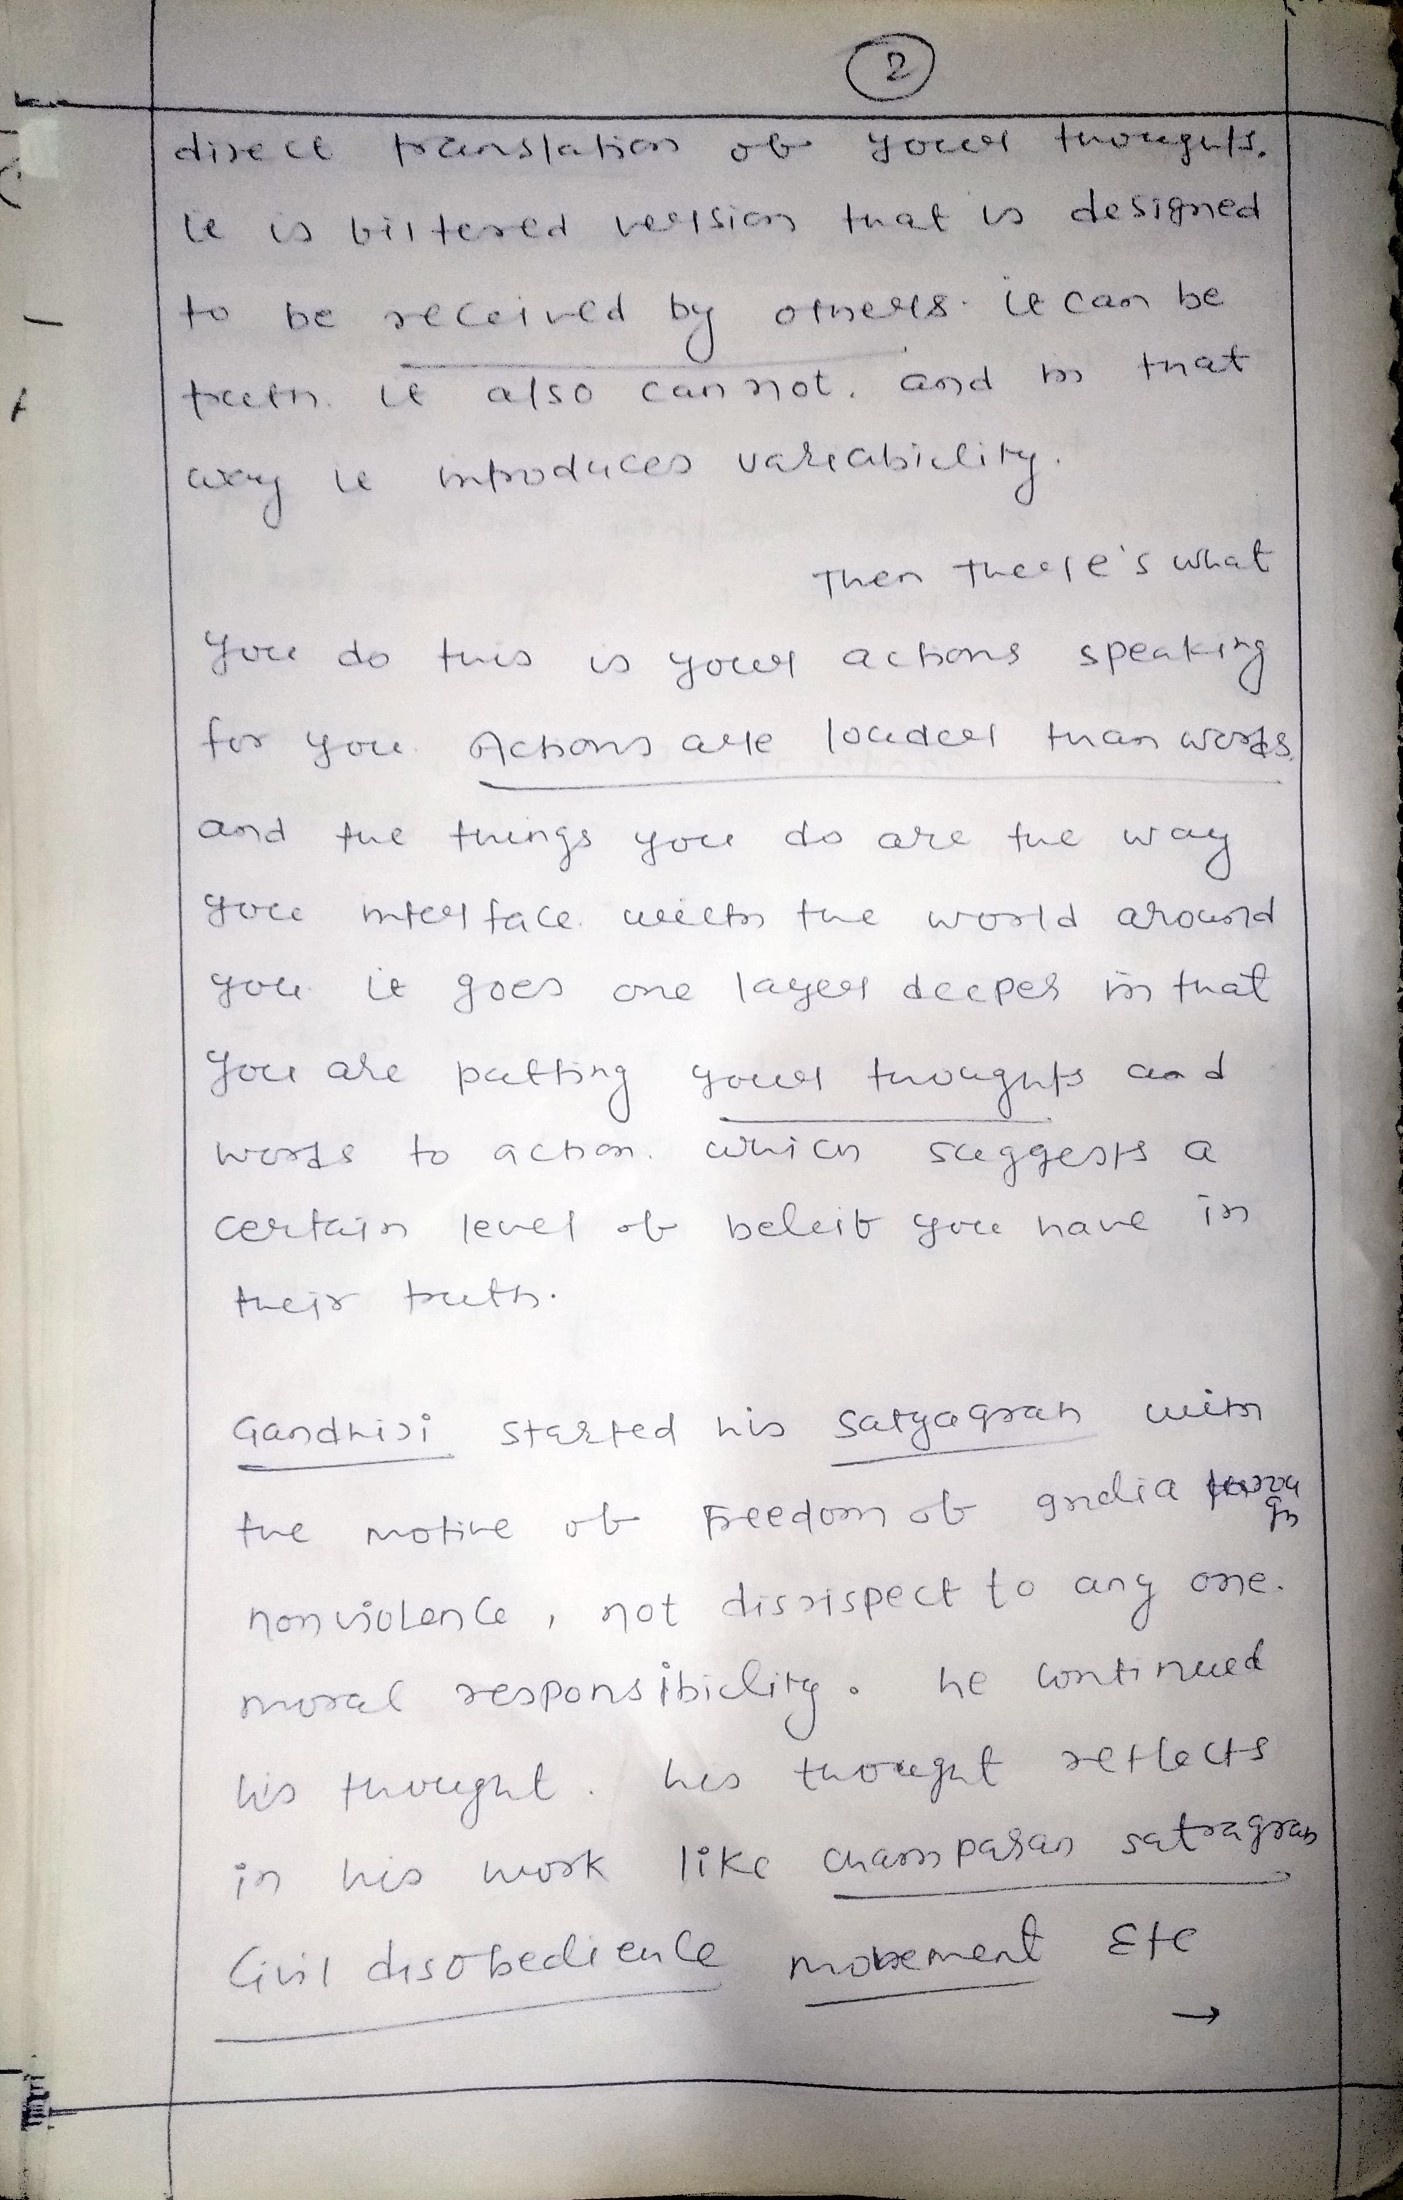 2
direct translation of your thoughts.
it is filtered version that is designed
to be received by others. it can be
truth. it also can not. and in that
way it introduces variability.
Then there's what
you do this is your actions speaking
for you. Actions are louder than words.
and the things you do are the way
you interface with the world around
you. it goes one layer deeper in that
you are putting your thoughts and
words to action. which suggests a
certain level of beleif you have in
their truth.
Gandhiji started his satyagrah with
the motive of Freedom of India throu
gh
nonviolence, not disrispect to any one.
moral responsibility. he continued
his thought. his thought reflects
in his work like champaran satragrah
Civil disobedience movement Etc
→